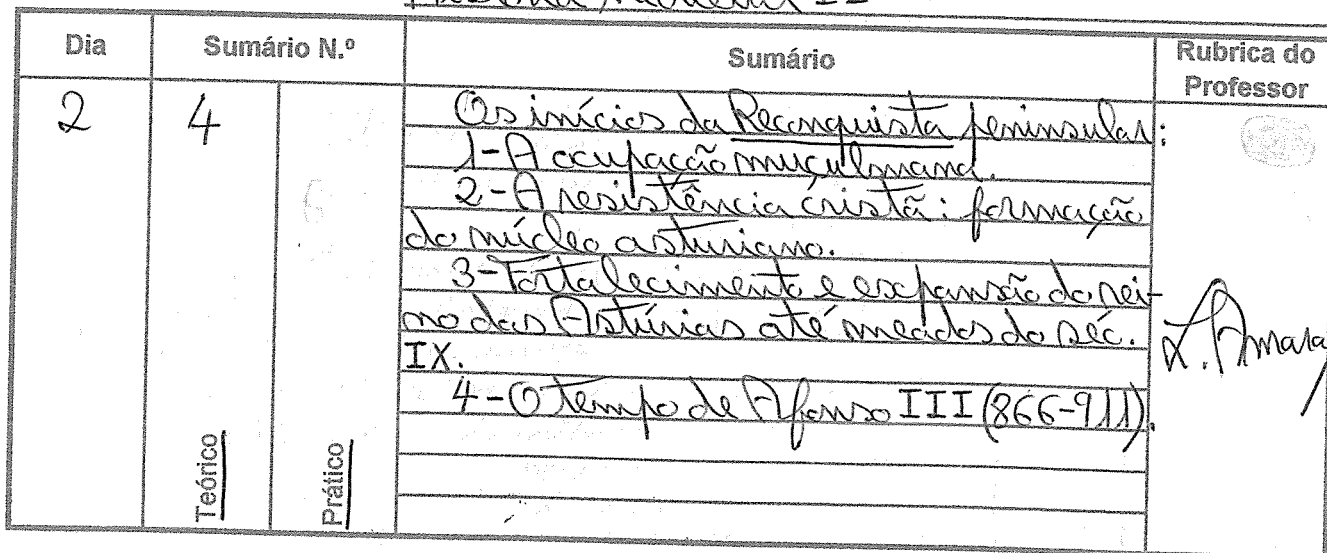 Dia Sumário N.º Sumário Rubrica do Professor
2 4 Os inícios da Reconquista peninsular:
1-A ocupação muçulmana.
2-A resistência cristã: formação
do núcleo asturiano.
3-Fortalecimento e expansão do rei-
no das Astúrias até meados do séc.
IX.
4-O tempo de Afonso III (866-911).
L. Amaral
Teórico
Prático